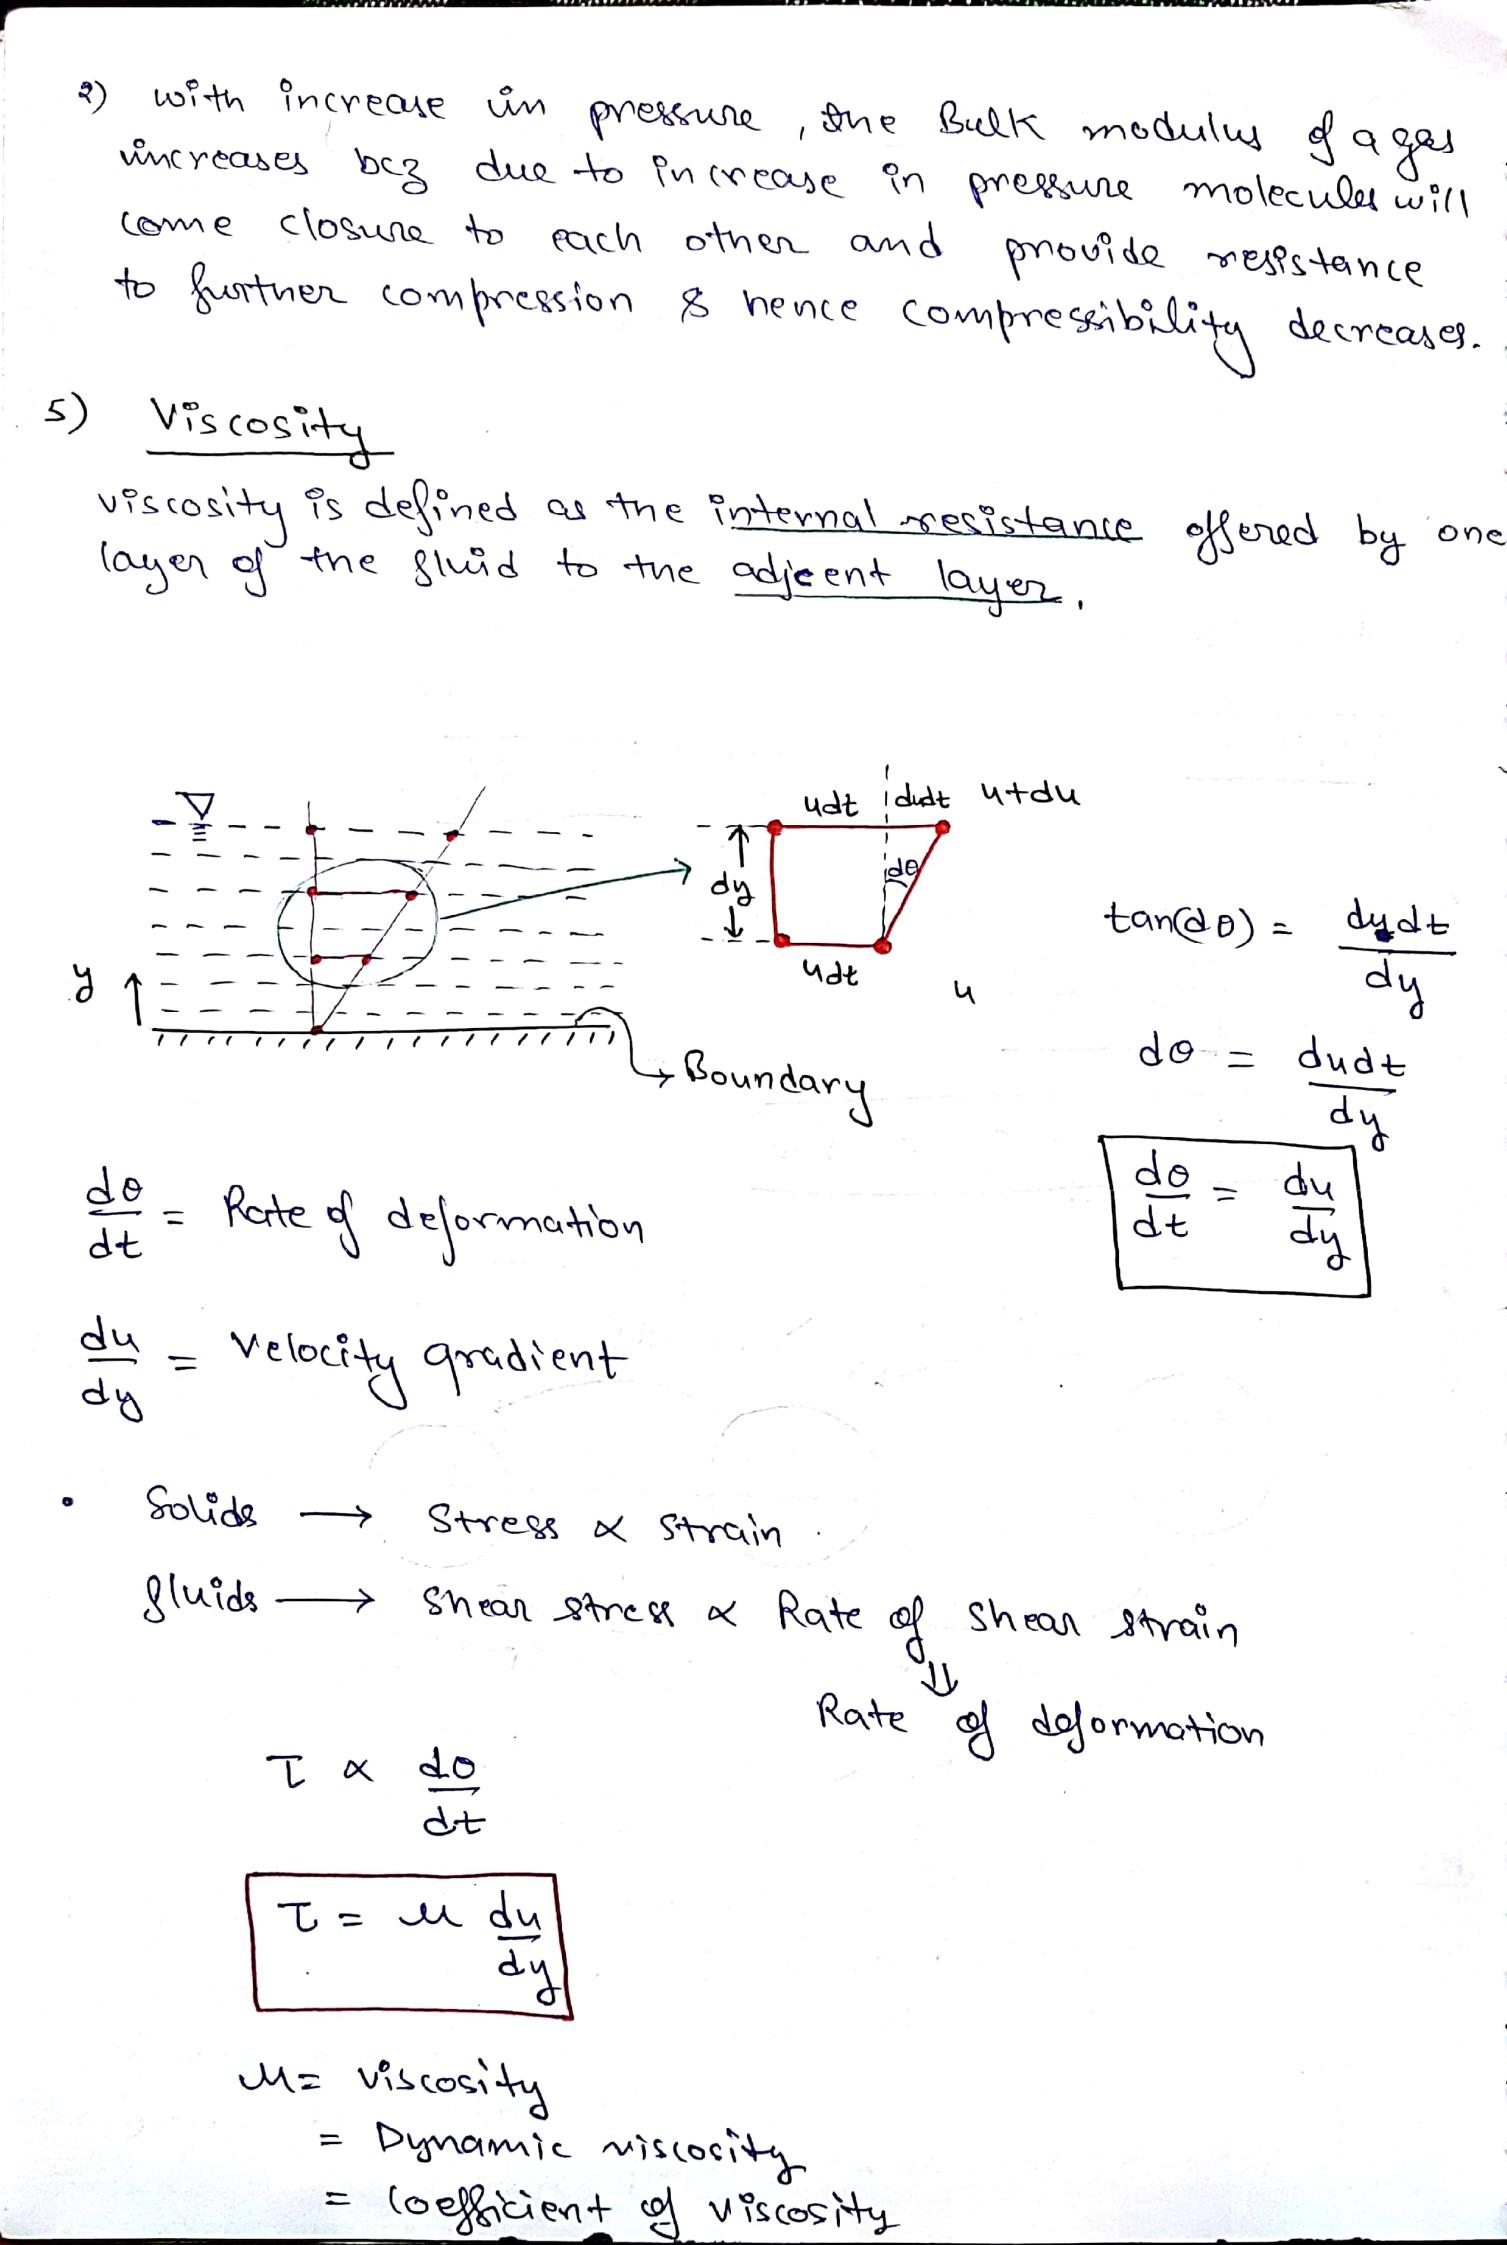 2) with increase in pressure, the Bulk modulus of a gas
increases bcz due to increase in pressure molecules will
come closure to each other and provide resistance
to further compression & hence compressibility decreases.
5) Viscosity
viscosity is defined as the internal resistance offered by one
layer of the fluid to the adjcent layer.
udt dudt u+du
dθ
dy
udt u
y
Boundary
tan(dθ) = dydt / dy
dθ = dudt / dy
dθ/dt = du/dy
dθ/dt = Rate of deformation
du/dy = velocity gradient
• Solids → Stress ∝ Strain
fluids → shear stress ∝ Rate of shear strain
⇓
Rate of deformation
τ ∝ dθ/dt
τ = μ du/dy
μ = viscosity
= Dynamic viscosity
= coefficient of viscosity